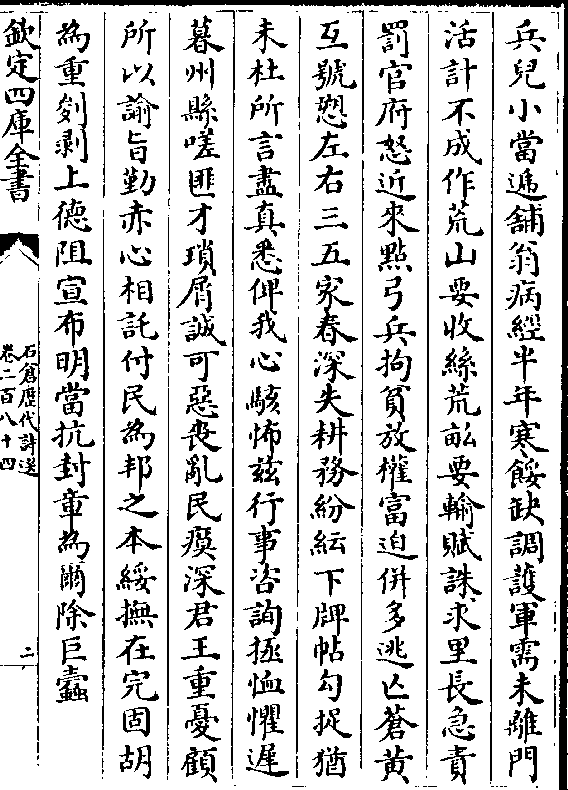 兵兒小當遞舖翁病經半年寒餒缺調護軍需未離門
活計不成作荒山要收絲荒畝要輸賦誅求里長急責
罰官府怒近來點弓兵拘貧放權富迫併多逃亡蒼黄
互號愬左右三五家春深失耕務紛紜下牌帖勾捉猶
未杜所言盡真悉俾我心駭怖兹行事咨詢拯恤懼遲
暮州縣嗟匪才瑣屑誠可惡喪亂民瘼深君王重憂顧
所以諭旨勤赤心相託付民為邦之本綏撫在完固胡
為重剜剥上德阻宣布明當抗封章為爾除巨蠹
欽定四庫全書
石倉歷代詩選
卷二百八十四
二